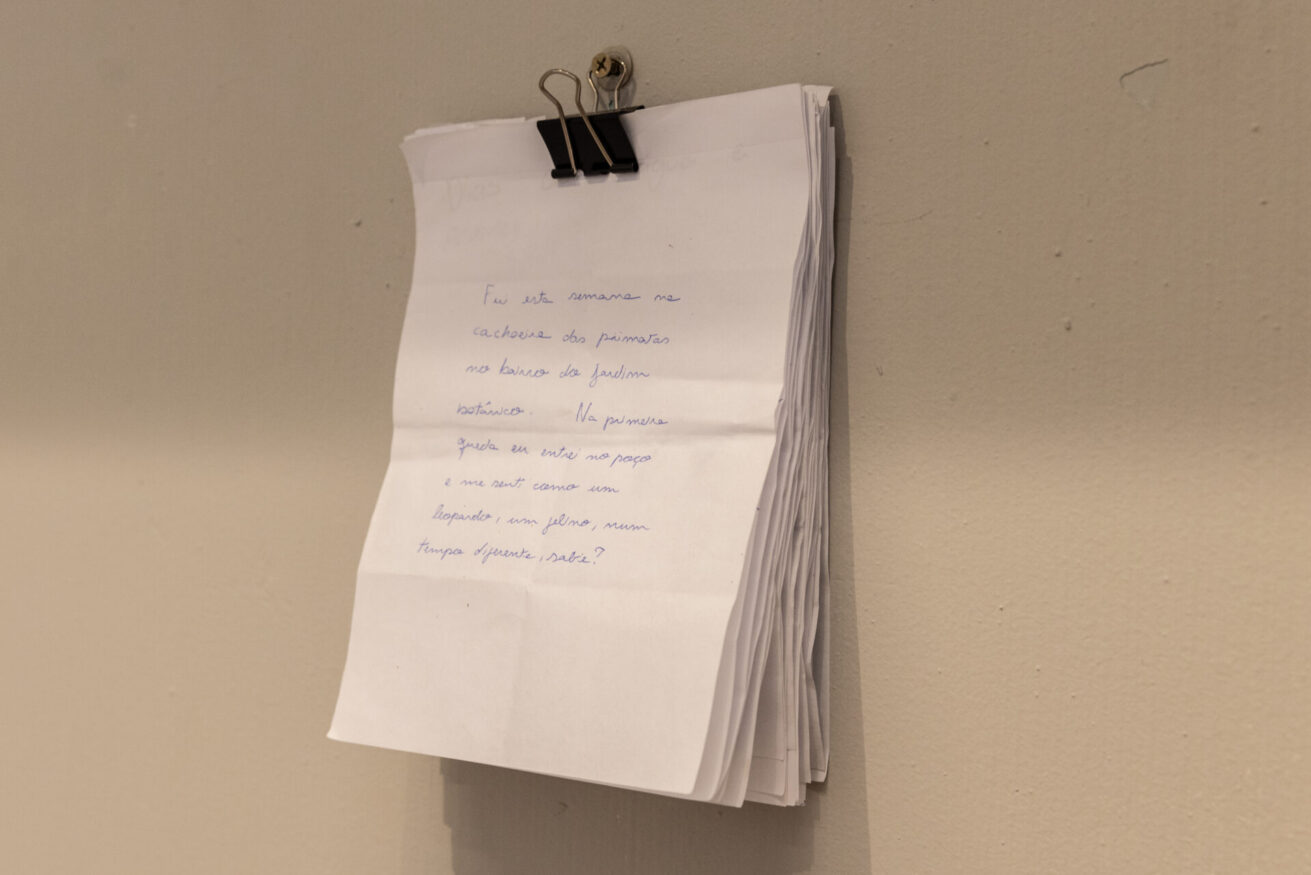 Fui esta semana na
cachoeira dos primatas
no bairro do jardim
botânico. Na primeira
queda eu entrei no poço
e me senti como um
leopardo, um felino, num
tempo diferente, sabe?